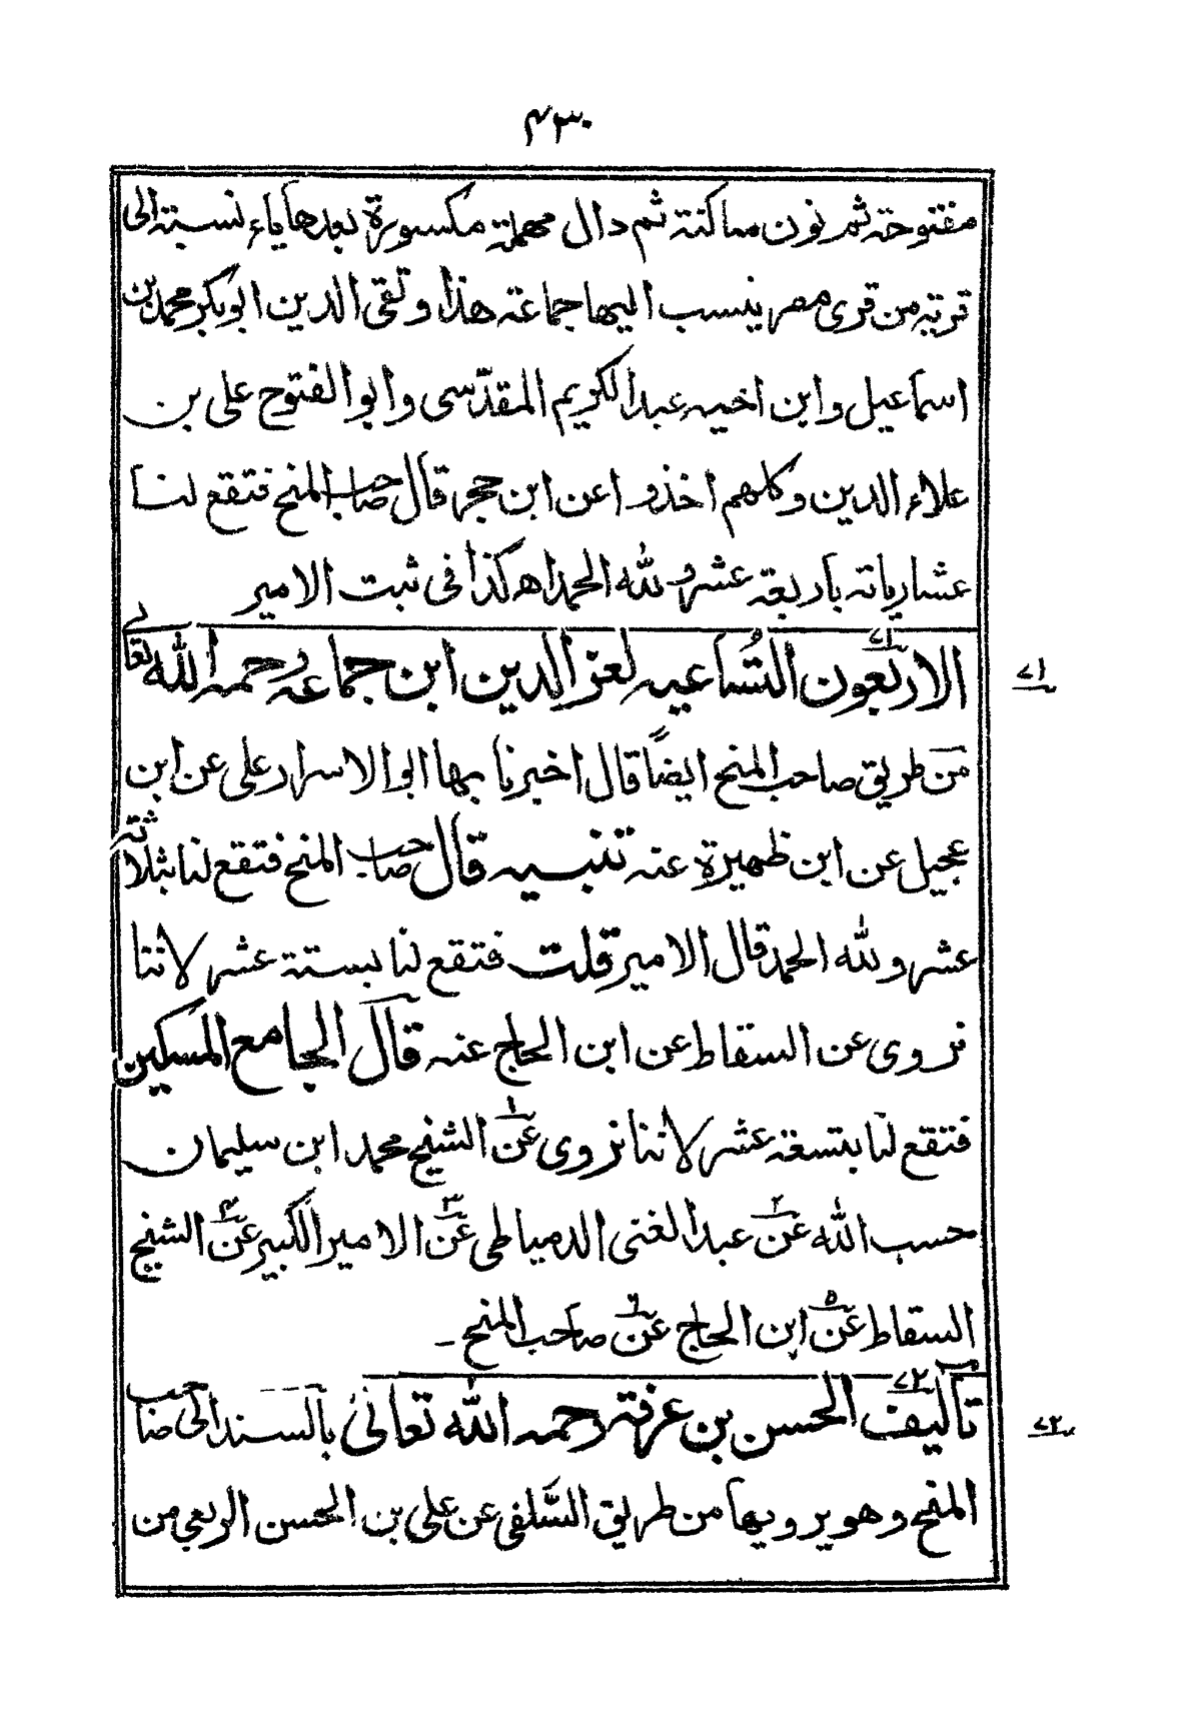 ۴۳۰
مفتوحة ثم نون ساكنة ثم دال مهملة مكسورة بعدها ياء نسبة الى
قرية من قرى مصر ينسب اليها جماعة هذا وتقى الدين ابو بكر محمد بن
اسماعيل وابن اخيه عبد الكريم المقدّسى وابو الفتوح على بن
علاء الدين وكلهم اخذوا عن ابن حجر قال صاحب المنح فتقع لنا
عشارياته باربعة عشر ولله الحمد اه كذا فى ثبت الامير
۷۱
الاربعون التُساعيه لعز الدين ابن جماعه رحمه الله تعالى
۷۱
من طريق صاحب المنح ايضاً قال اخبرنا بها ابو الاسرار على عن ابن
عجيل عن ابن ظهيرة عنه تنبيه قال صاحب المنح فتقع لنا بثلاثة
عشر ولله الحمد قال الامير قلت فتقع لنا بستة عشر لاننا
نروى عن السقاط عن ابن الحاج عنه قال الجامع المسكين
فتقع لنا بتسعة عشر لاننا نروى عن۱ الشيخ محمد ابن سليمان
حسب الله عن۲ عبد الغنى الدمياطى عن۳ الامير الكبير عن۴ الشيخ
السقاط عن۵ ابن الحاج عن۶ صاحب المنح -
۷۲
تآليف الحسن بن عرفة رحمه الله تعالىٰ بالسند الى صاحب
۷۲
المنح وهو يرويها من طريق السَّلفى عن على بن الحسن الربعى من